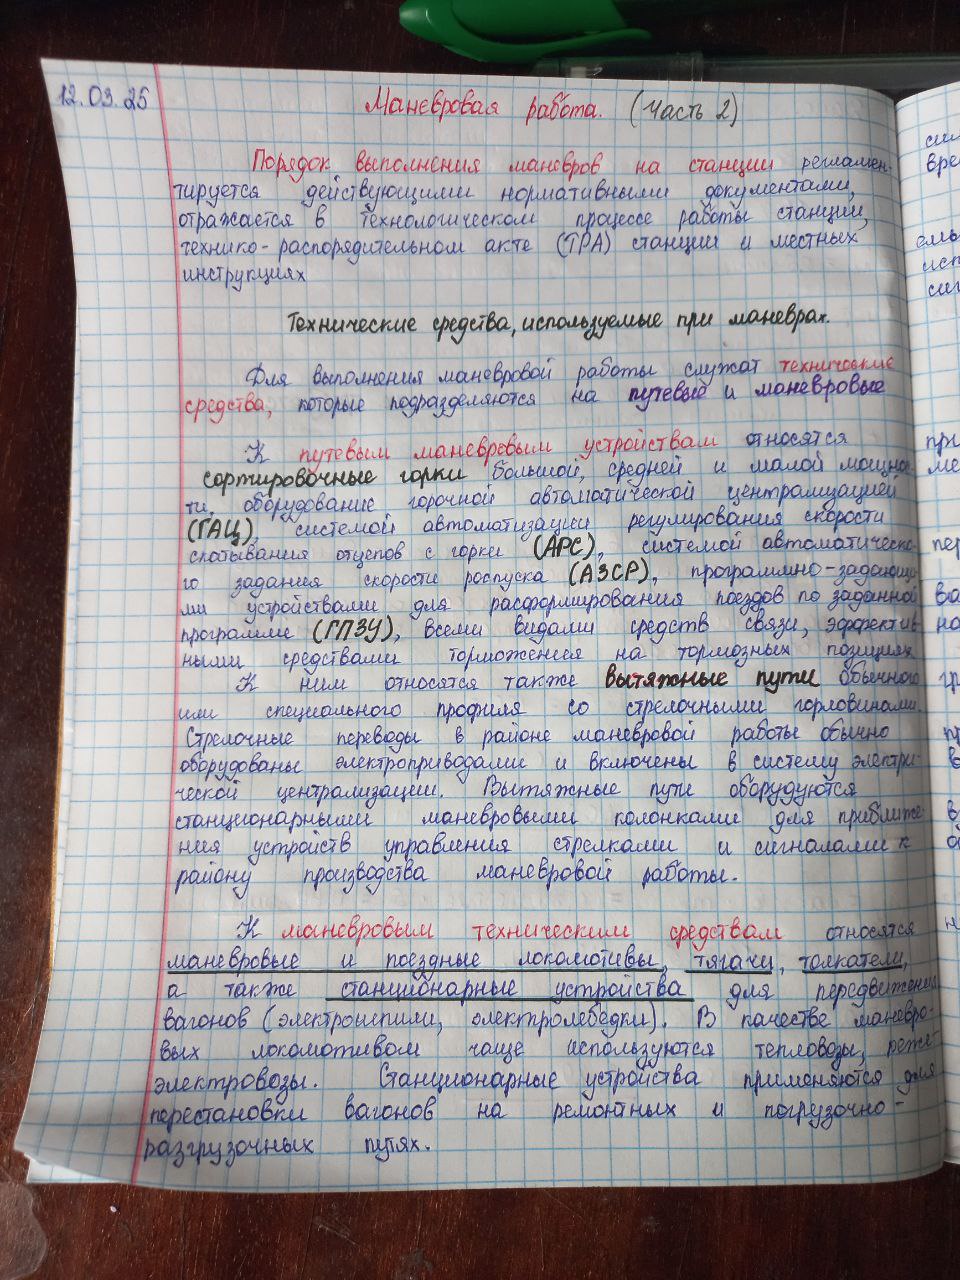 12.03.25
Маневровая работа. (Часть 2)
Порядок выполнения маневров на станции регламен-
тируется действующими нормативными документами,
отражается в технологическом процессе работы станции,
технико-распорядительном акте (ТРА) станции и местных
инструкциях
Технические средства, используемые при маневрах.
Для выполнения маневровой работы служат технические
средства, которые подразделяются на путевые и маневровые
К путевым маневровым устройствам относятся
сортировочные горки большой, средней и малой мощнос-
ти, оборудование горочной автоматической централизацией
(ГАЦ), системой автоматизации регулирования скорости
скатывания отцепов с горки (АРС), системой автоматическо-
го задания скорости роспуска (АЗСР), программно-задающи-
ми устройствами для расформирования поездов по заданной
программе (ГПЗУ), всеми видами средств связи, эффектив-
ными средствами торможения на тормозных позициях
К ним относятся также вытяжные пути обычного
или специального профиля со стрелочными горловинами.
Стрелочные переводы в районе маневровой работы обычно
оборудованы электроприводами и включены в систему электри-
ческой централизации. Вытяжные пути оборудуются
станционарными маневровыми колонками для приближе-
ния устройств управления стрелками и сигналами к
району производства маневровой работы.
К маневровым техническим средствам относятся
маневровые и поездные локомотивы, тягачи, толкатели,
а также станционарные устройства для передвижения
вагонов (электрошпили, электролебедки). В качестве маневро-
вых локомотивом чаще используются тепловозы, реже-
электровозы. Станционарные устройства применяются для
перестановки вагонов на ремонтных и погрузочно-
разгрузочных путях.